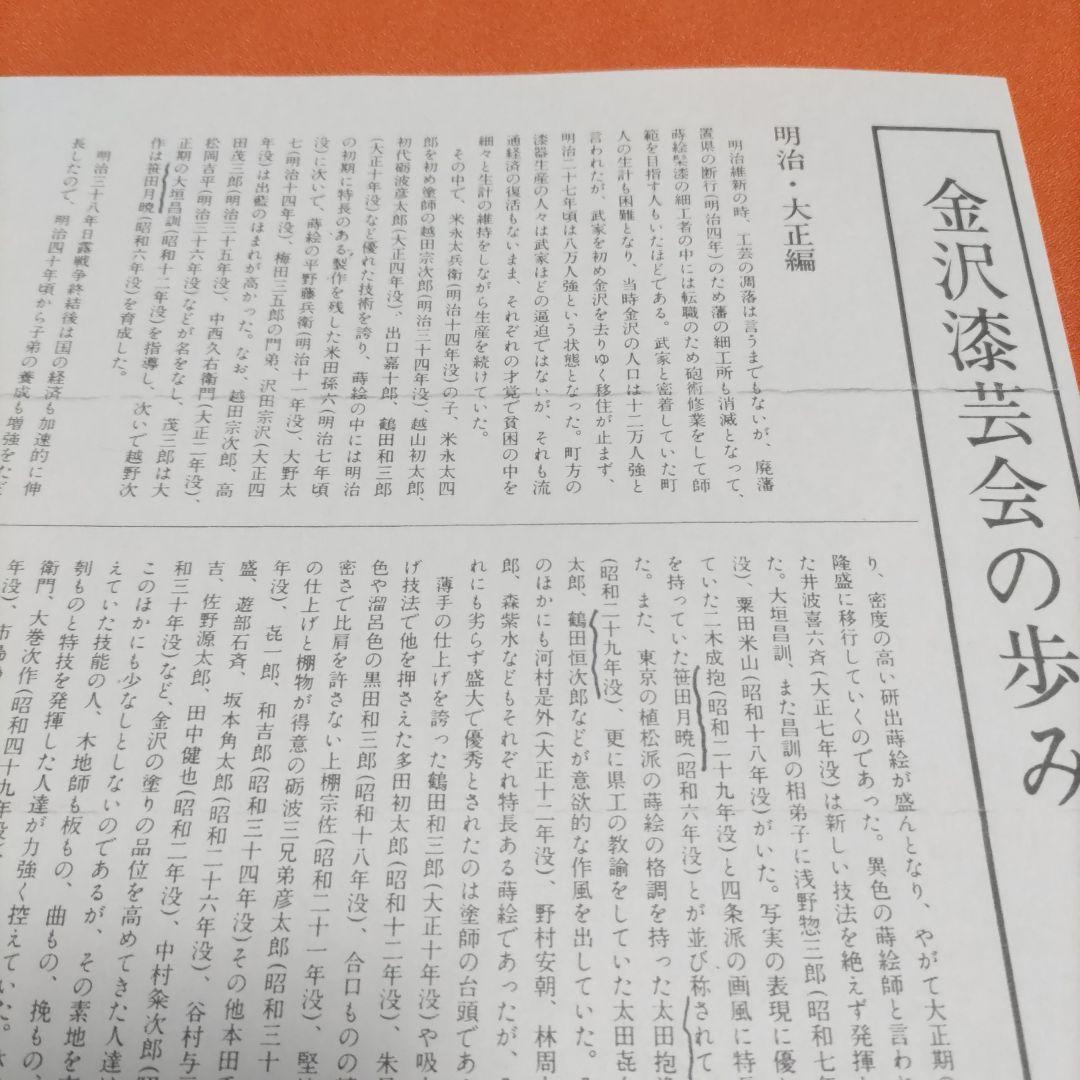 金沢漆芸会の歩み
明治・大正編
明治維新の時、工芸の凋落は言うまでもないが、廃藩
置県の断行(明治四年)のため藩の細工所も消滅となって、
蒔絵髹漆の細工者の中には転職のため砲術修業をして師
範を目指す人もいたほどである。武家と密着していた町
人の生計も困難となり、当時金沢の人口は十二万人強と
言われたが、武家を初め金沢を去りゆく移住が止まず、
明治二十七年頃は八万人強という状態となった。町方の
漆器生産の人々は武家ほどの逼迫ではないが、それも流
通経済の復活もないまま、それぞれの才覚で貧困の中を
細々と生計の維持をしながら生産を続けていた。
その中で、米永太兵衛(明治十四年没)の子、米永太四
郎を初め塗師の越田宗次郎(明治三十四年没)、越山初太郎、
初代砺波彦太郎(大正四年没)、出口嘉十郎、鶴田和三郎
(大正十年没)など優れた技術を誇り、蒔絵の中には明治
の初期に特長のある製作を残した米田孫六(明治七年頃
没)に次いで、蒔絵の平野藤兵衛(明治十一年没)、大野太
七(明治十四年没)、梅田三五郎の門弟、沢田宗沢(大正四
年没)は出藍のほまれが高かった。なお、越田宗次郎、高
田茂三郎(明治三十五年没)、中西久右衛門(大正二年没)、
松岡吉平(明治三十六年没)などが名をなし、茂三郎は大
正期の大垣昌訓(昭和十二年没)を指導し、次いで越野次
作は笹田月暁(昭和六年没)を育成した。
明治三十八年日露戦争終結後は国の経済も加速的に伸
長したので、明治四十年頃から子弟の養成も増強をただ
り、密度の高い研出蒔絵が盛んとなり、やがて大正期(
隆盛に移行していくのであった。異色の蒔絵師と言わ
た井波喜六斉(大正七年没)は新しい技法を絶えず発揮
た。大垣昌訓、また昌訓の相弟子に浅野惣三郎(昭和七年
没)、粟田米山(昭和十八年没)がいた。写実の表現に優
ていた二木成抱(昭和二十九年没)と四条派の画風に特
を持っていた笹田月暁(昭和六年没)とが並び称されて
た。また、東京の植松派の蒔絵の格調を持った太田抱
(昭和二十九年没)、更に県工の教諭をしていた太田㐂
太郎、鶴田恒次郎などが意欲的な作風を出していた。
のほかにも河村是外(大正十二年没)、野村安朝、林周
郎、森紫水などもそれぞれ特長ある蒔絵であったが、
れにも劣らず盛大で優秀とされたのは塗師の台頭であ
薄手の仕上げを誇った鶴田和三郎(大正十年没)や吸
げ技法で他を押さえた多田初太郎(昭和十二年没)、朱
色や溜呂色の黒田和三郎(昭和十八年没)、合口ものの
密さで比肩を許さない上棚宗佐(昭和二十一年没)、堅
の仕上げと棚物が得意の砺波三兄弟彦太郎(昭和三十
年没)、㐂一郎、和吉郎(昭和三十四年没)その他本田
盛、遊部石斉、坂本角太郎(昭和二十六年没)、谷村与
吉、佐野源太郎、田中健也(昭和二年没)、中村粂次郎(
和三十年没)など、金沢の塗りの品位を高めてきた人達
このほかにも少なしとしないのであるが、その素地を
えていた技能の人、木地師も板もの、曲もの、挽もの、
刳ものと特技を発揮した人達が力強く控えていた。
衛門、大巻次作(昭和四十九年没)
年没)、市島